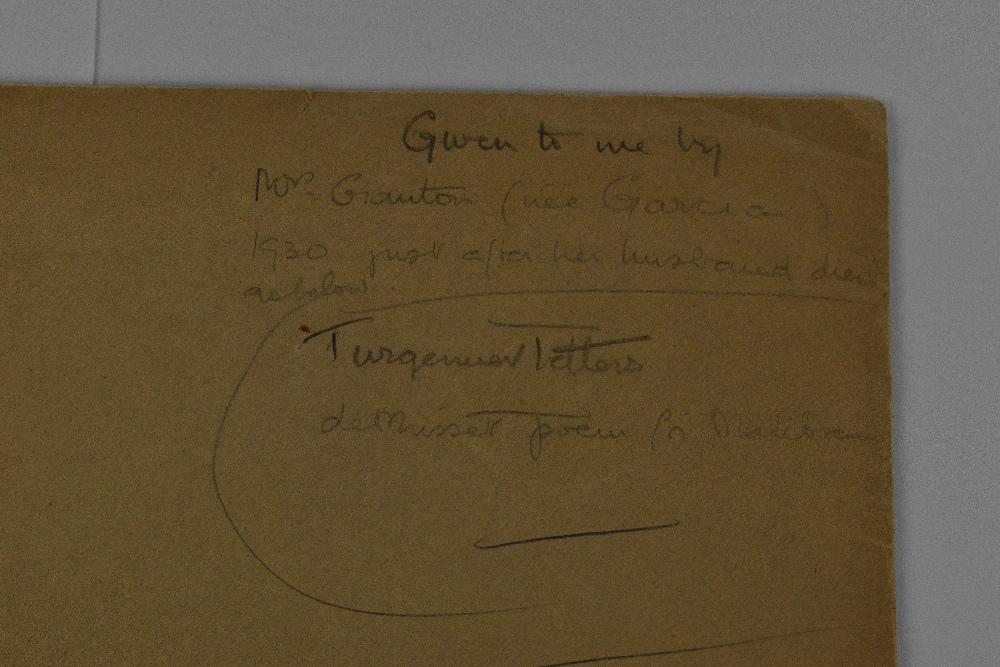 Given to me by
Mrs. Granton (née Garcia)
1930 just after her husband died
as below.
Turgenev Letters
de Musset poem Malibran